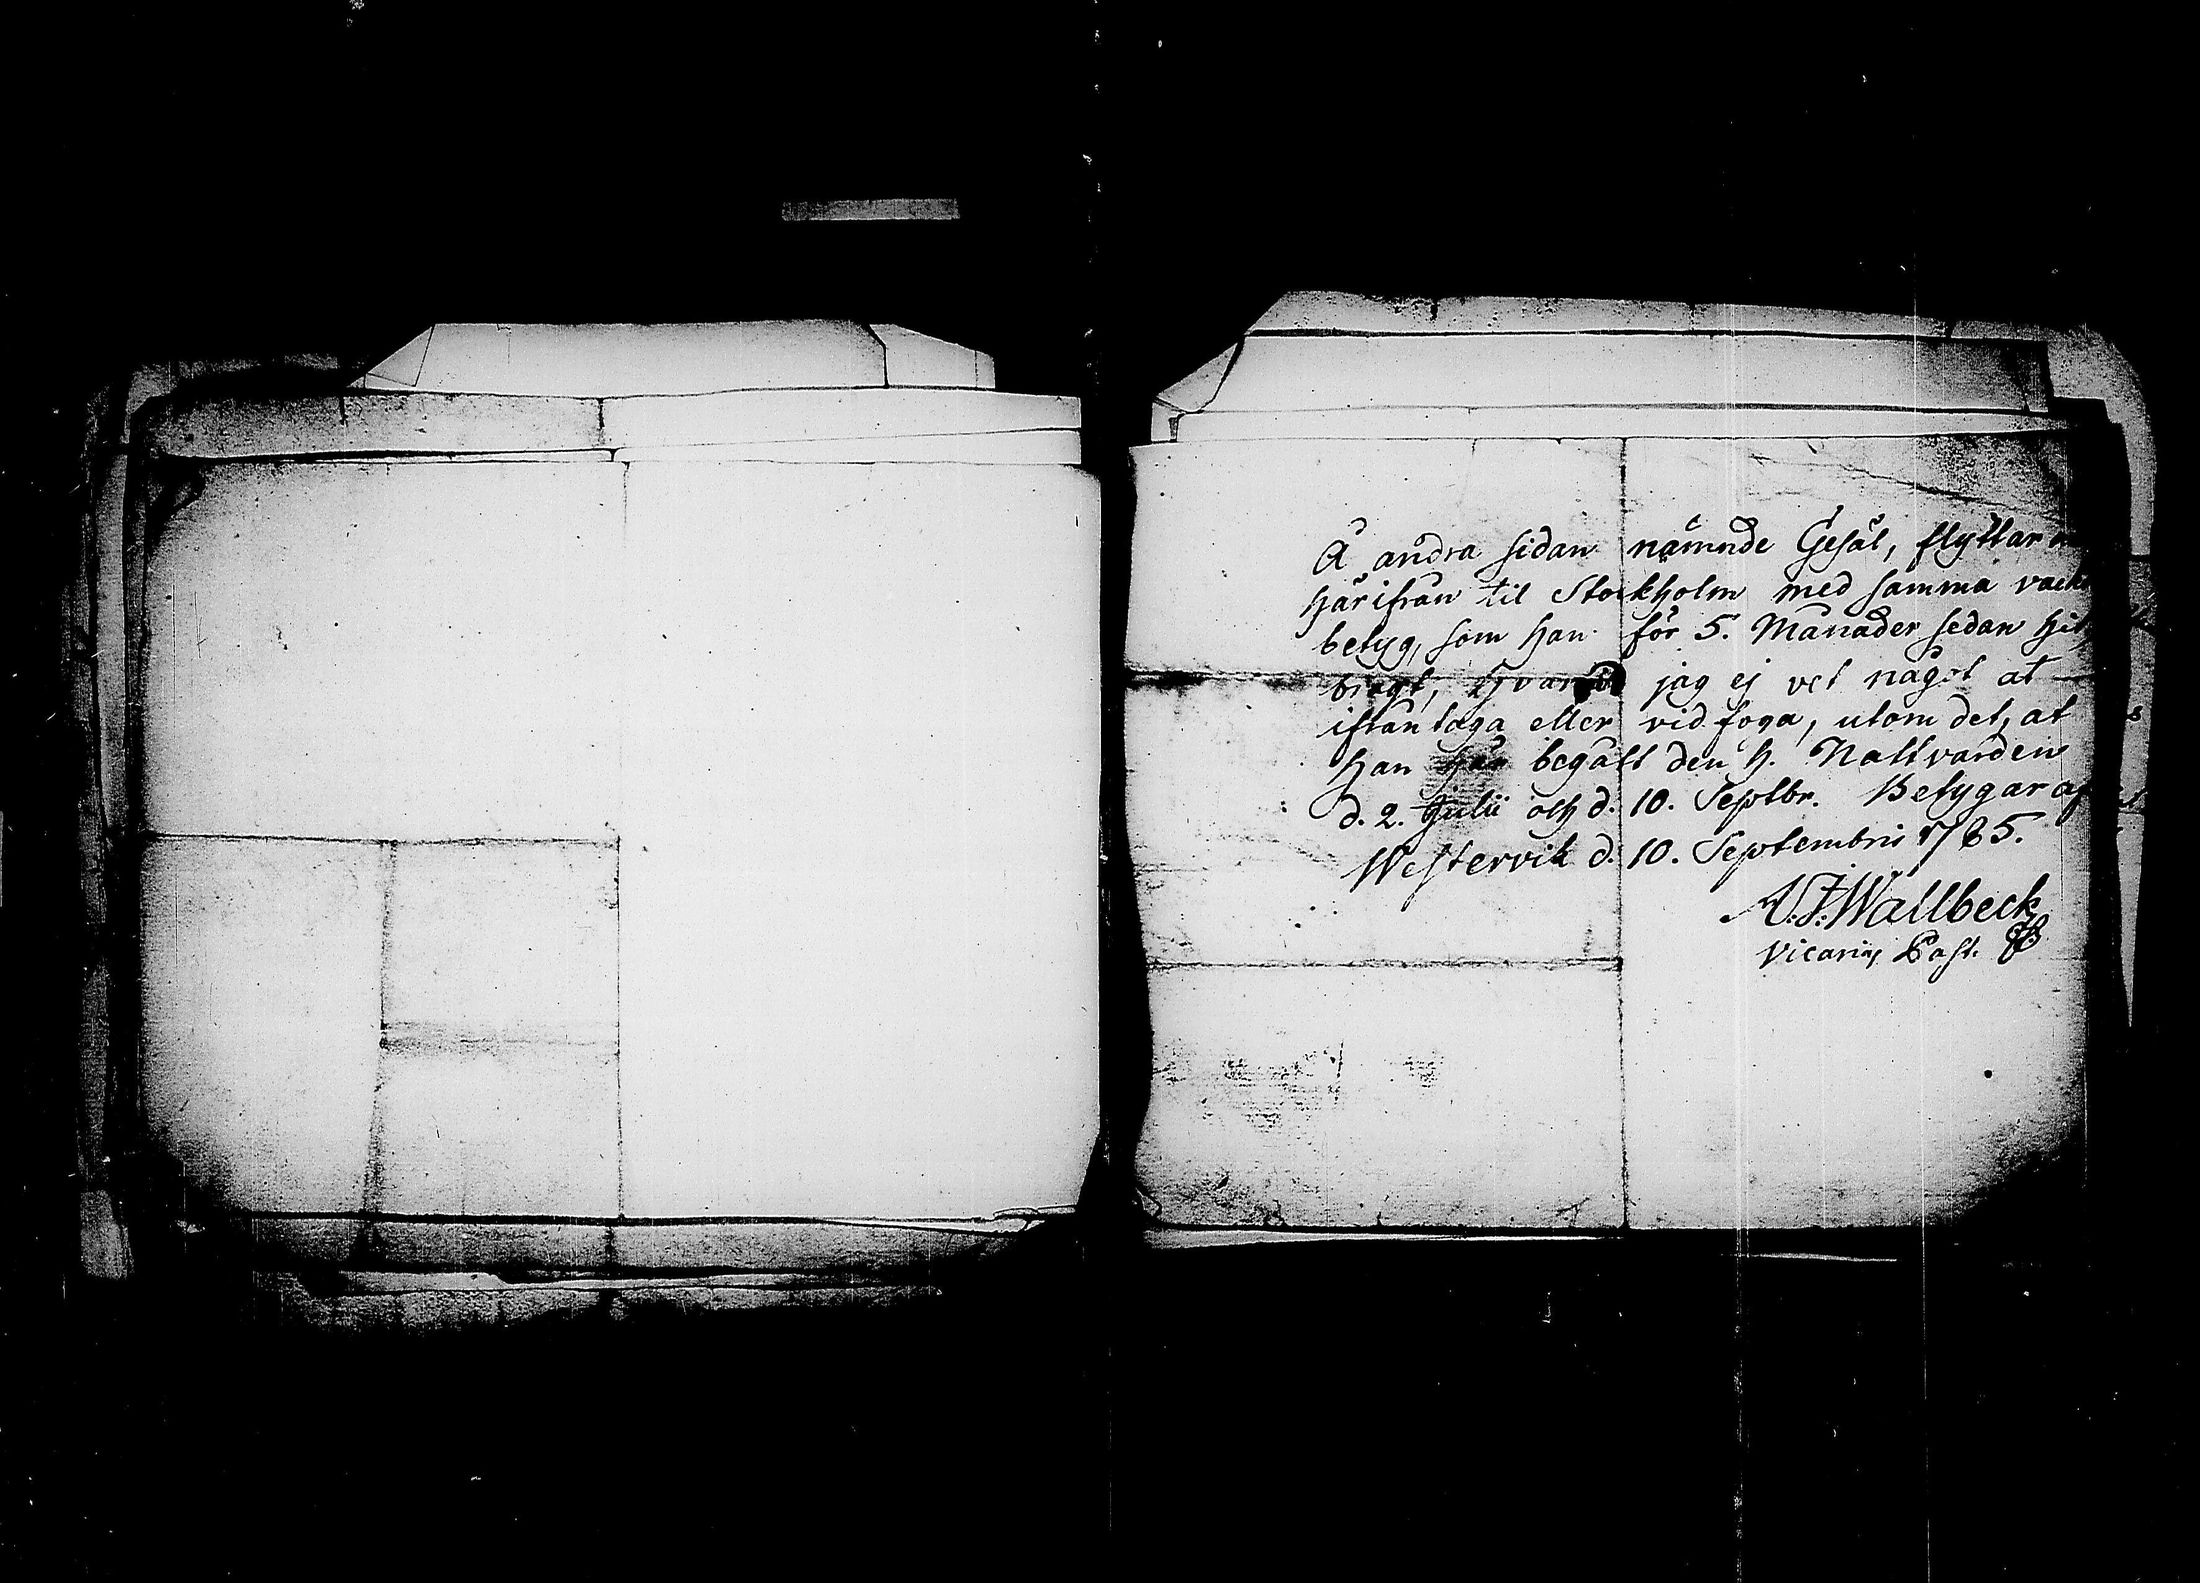 Å andra sidan nämnde Gesäl, flyttar
härifrån til Stockholm med samma vack
betyg, som han för 5. Månader sedan hit
bragt, hvar jag ej vet något at
ifrån taga eller vid foga, utom det, at
han här begått den H. Nattvarden
d. 2. Julii och d. 10. Septbr. Betygar af
Westervik d. 10. Septembris 1785.
Wallbeck
Vicarius Past.